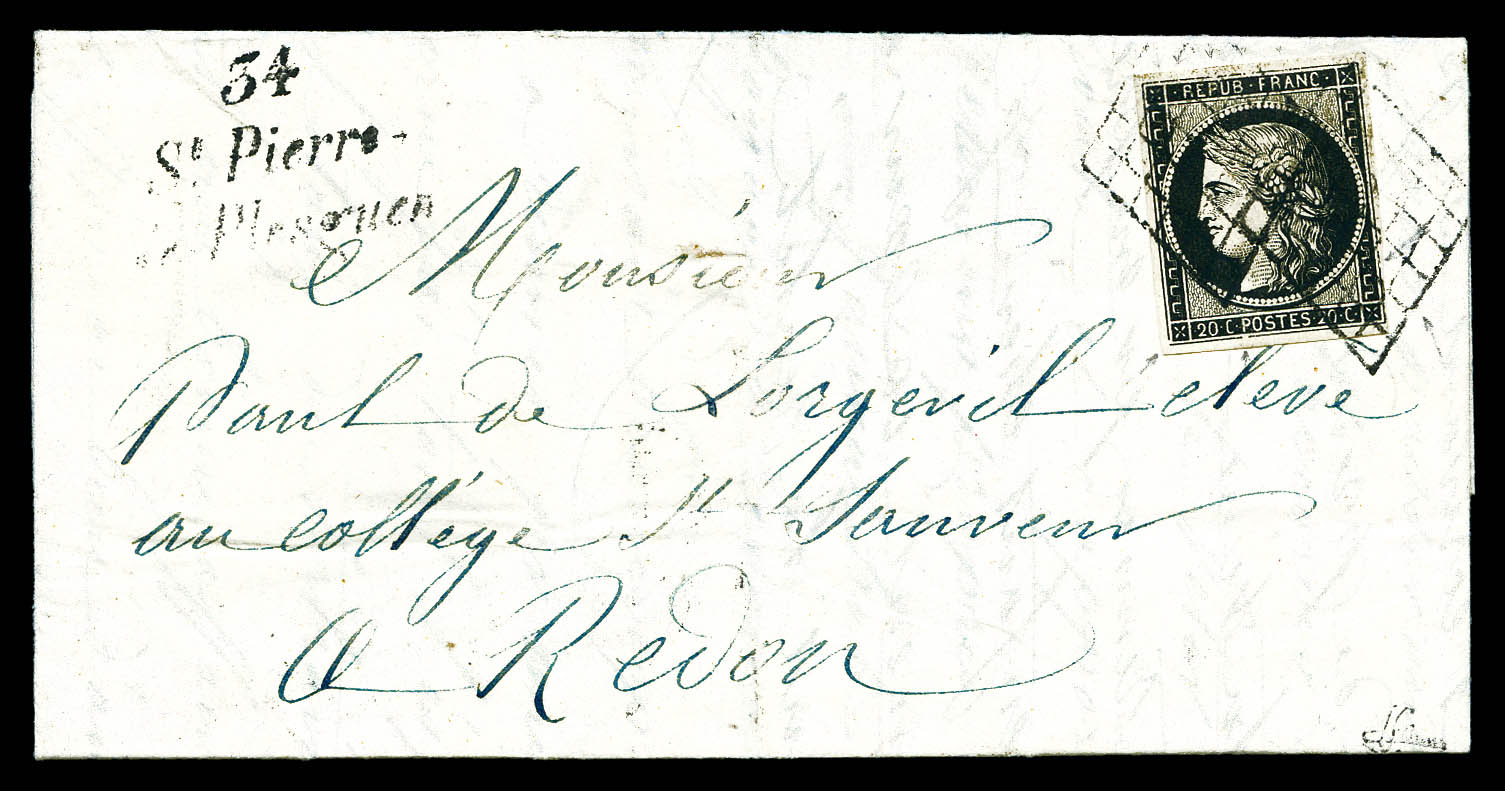 34
St Pierre-
de Plesguen
REPUB·FRANC·
20·C·POSTES·20·C
Monsieur
Paul de Lorgeril éleve
au collége St Sauveur
a Redon